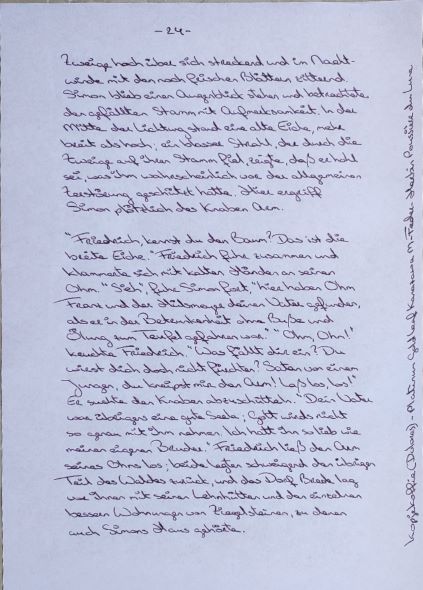 - 24 -
Zweige hoch über sich streckend und im Nacht-
winde mit den noch frischen Blättern zitternd.
Simon blieb einen Augenblick stehen und betrachtete
den gefällten Stamm mit Aufmerksamkeit. In der
Mitte der Lichtung stand eine alte Eiche, mehr
breit als hoch; ein blasser Strahl, der durch die
Zweige auf ihren Stamm fiel, zeigte, daß er hohl
sei, was ihn wahrscheinlich vor der allgemeinen
Zerstörung geschützt hatte. Hier ergriff
Simon plötzlich des Knaben Arm.
"Friedrich, kennst du den Baum? Das ist die
breite Eiche." Friedrich fuhr zusammen und
klammerte sich mit kalten Händen an seinen
Ohm. "Sieh", fuhr Simon fort, "hier haben Ohm
Franz und der Hülsmeyer deinen Vater gefunden,
als er in der Betrunkenheit ohne Buße und
Ölung zum Teufel gefahren war." "Ohm, Ohm!"
keuchte Friedrich. "Was fällt dir ein? Du
wirst dich doch nicht fürchten? Satan von einem
Jungen, du kneipst mir den Arm! Laß los, los!"
Er suchte den Knaben abzuschütteln. "Dein Vater
war übrigens eine gute Seele; Gott wird's nicht
so genau mit ihm nehmen. Ich hatt' ihn so lieb wie
meinen eigenen Bruder." Friedrich ließ den Arm
seines Ohms los; beide legten schweigend den übrigen
Teil des Waldes zurück, und das Dorf Brede lag
vor ihnen mit seinen Lehmhütten und den einzelnen
bessern Wohnungen von Ziegelsteinen, zu denen
auch Simons Haus gehörte.
Platinum Gold Leaf Kanazawa M-Feder Herbin Poussière de Lune